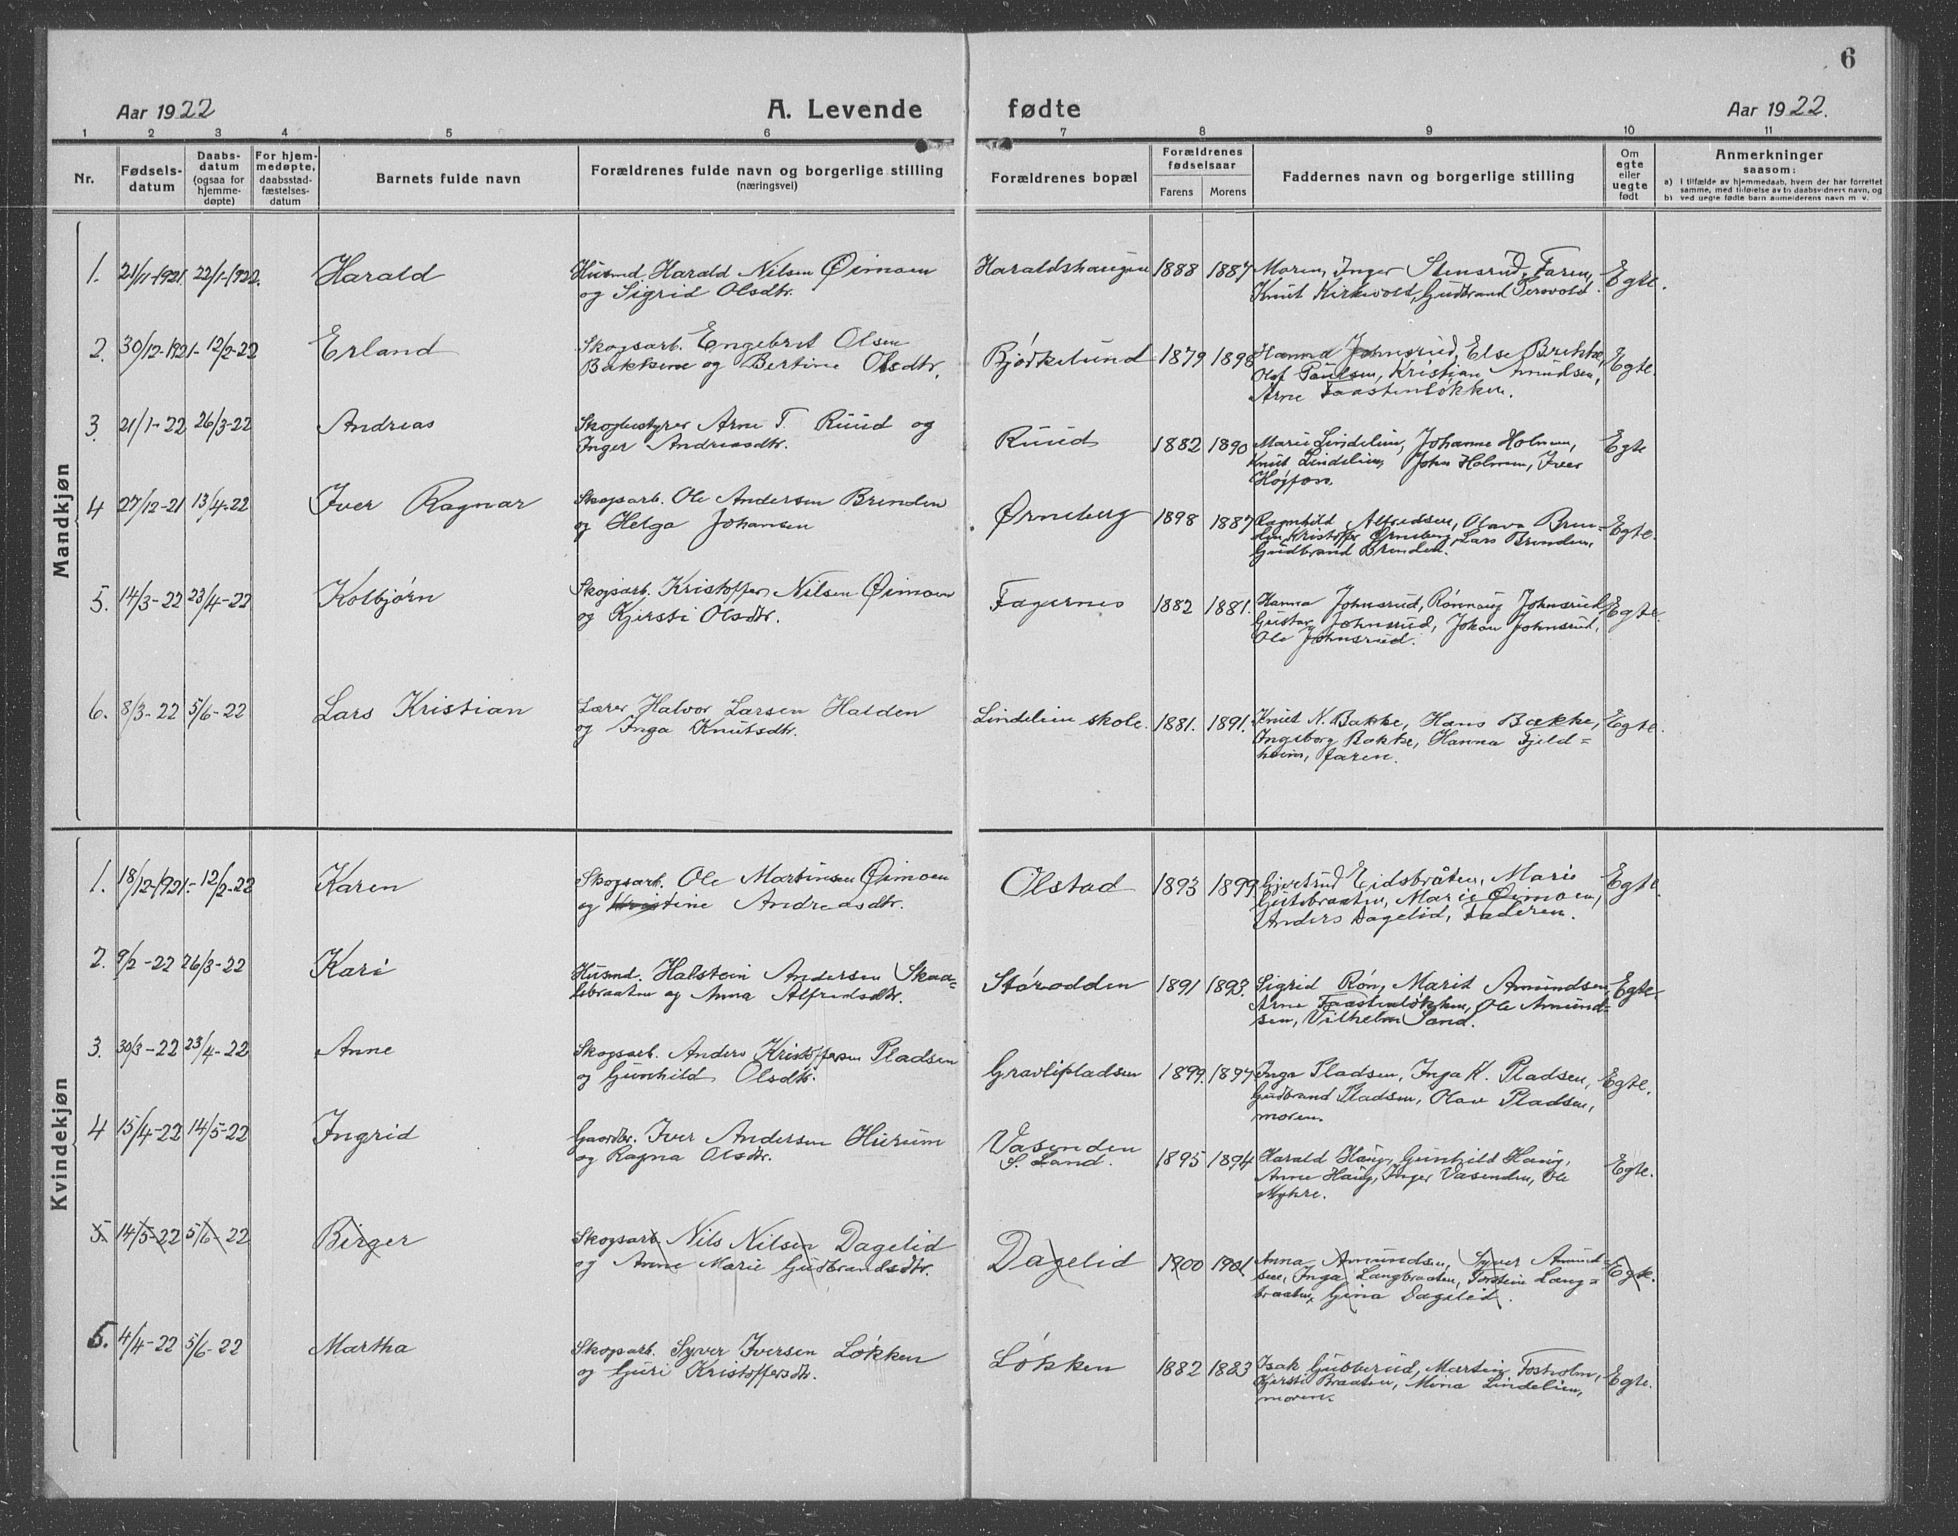 6
Aar 1922 A. Levende fødte Aar 1922.
1 2 3 4 5 6 7 8 9 10 11
Nr.
Fødsels-
datum
Daabs-
datum
(ogsaa for
hjemme-
døpte)
For hjem-
medøpte,
daabsstad-
fæstelses-
datum
Barnets fulde navn
Forældrenes fulde navn og borgerlige stilling
(næringsvei)
Forældrenes bopæl
Forældrenes
fødselsaar
Farens Morens
Faddernes navn og borgerlige stilling
Om
egte
eller
uegte
født
Anmerkninger
saasom:
a) i tilfælde av hjemmedaab, hvem der har forrettet
samme, med tilføielse av to daabsvidners navn, og
b) ved uegte fødte barn anmelderens navn m. v.
Mandkjøn
1. 21/11-1921. 22/1-1922. Harald
Husmd Harald Nilsen Øimoen
og Sigrid Olsdtr.
Haraldshaugen 1888 1887
Moren, Inger Stensrud, Faren,
Knut Kirkevold, Gudbrand
Egte.
2. 30/12-1921- 12/2-22 Erland
Skogsarb. Engebrit Olsen
Bakkene og Bertine Olsdtr.
Bjørkelund 1879 1898
Hanna Johnsrud, Else Brekke,
Olof Paulsen, Kristian Amundsen,
Arne Faastenløkken.
Egte.
3. 21/1-22 26/3-22 Andreas
Skogbestyrer Arne T. Ruud og
Inger Andreasdtr.
Ruud 1882 1890
Marie Lindelien, Johanne Holmen,
Knut Lindelien, John Holmen, Iver
Egte
4 27/12-21 13/4-22 Iver Ragnar
Skogsarb. Ole Andersen Brenden
og Helga Johansen
Ørneberg 1898 1887
Ragnhild Alfredsen, Olava Bren-
den, Kristoffer Ørneberg, Lars Brenden,
Gudbrand Brenden.
Egte.
5. 14/3-22 23/4-22 Kolbjørn
Skogsarb. Kristoffer Nilsen Øimoen
og Kjersti Olsdtr.
Fagernes 1882 1881.
Hanna Johnsrud, Rønnaug Johnsrud,
Gustav Johnsrud, Johan Johnsrud,
Ole Johnsrud.
Egte.
6. 8/3-22 5/6-22 Lars Kristian
Lærer Halvor Larsen Halden
og Inga Knutsdtr.
Lindelien skole. 1881. 1891.
Knut N. Bakke, Hans Bakke,
Ingeborg Bakke, Hanna Fjeld=
heim, faren.
Egte.
Kvindekjøn
1. 18/12-1921.- 12/2-22 Karen
Skogsarb. Ole Martinsen Øimoen
og Kristine Andreasdtr.
Olstad 1893 1899
Gjertrud Eidsbråten, Marie
Marie Øimoen,
Anders Dagelid, Faderen.
Egte.
2. 9/2-22 26/3-22 Kari
Husmd. Halstein Andersen Skaa=
lebraaten og Anna Alfredsdtr.
Størodden 1891 1893.
Sigrid Røn, Marit Amundsen,
Arne Faastenløkken, Ole Amund=
sen, Vilhelm Sand.
Egte.
3. 30/3-22 23/4-22 Anne
Skogsarb. Anders Kristoffersen Pladsen
og Gunhild Olsdtr.
Gravlipladsen 1899. 1897
Inga Pladsen, Inga K. Pladsen,
Gudbrand Pladsen, Olav Pladsen,
moren.
Egte.
4 15/4-22 14/5-22 Ingrid
Gaardbr. Iver Andersen Hierum
og Ragna Olsdtr.
Vasenden
S. Land. 1895 1894
Harald Haug, Gunhild Haug,
Anne Haug, Inger Vasenden, Ole
Myhre.
Egte.
5. 14/5-22 5/6-22 Birger
Skogsarb. Nils Nilsen Dagelid
og Anne Marie Gudbrandsdtr.
Dagelid 1900 1901
Anna Amundsen, Syver Amund-
sen, Inga Langbraaten, Torstein Lang=
braaten, Gina Dagelid.
Egte.
5. 4/4-22 5/6-22 Martha
Skogsarb. Syver Iversen Løkken
og Guri Kristoffersdtr.
Løkken 1882 1883
Isak Gubberud, Martin Fosholm,
Kjersti Braaten, Mina Lindelien,
moren.
Egte.